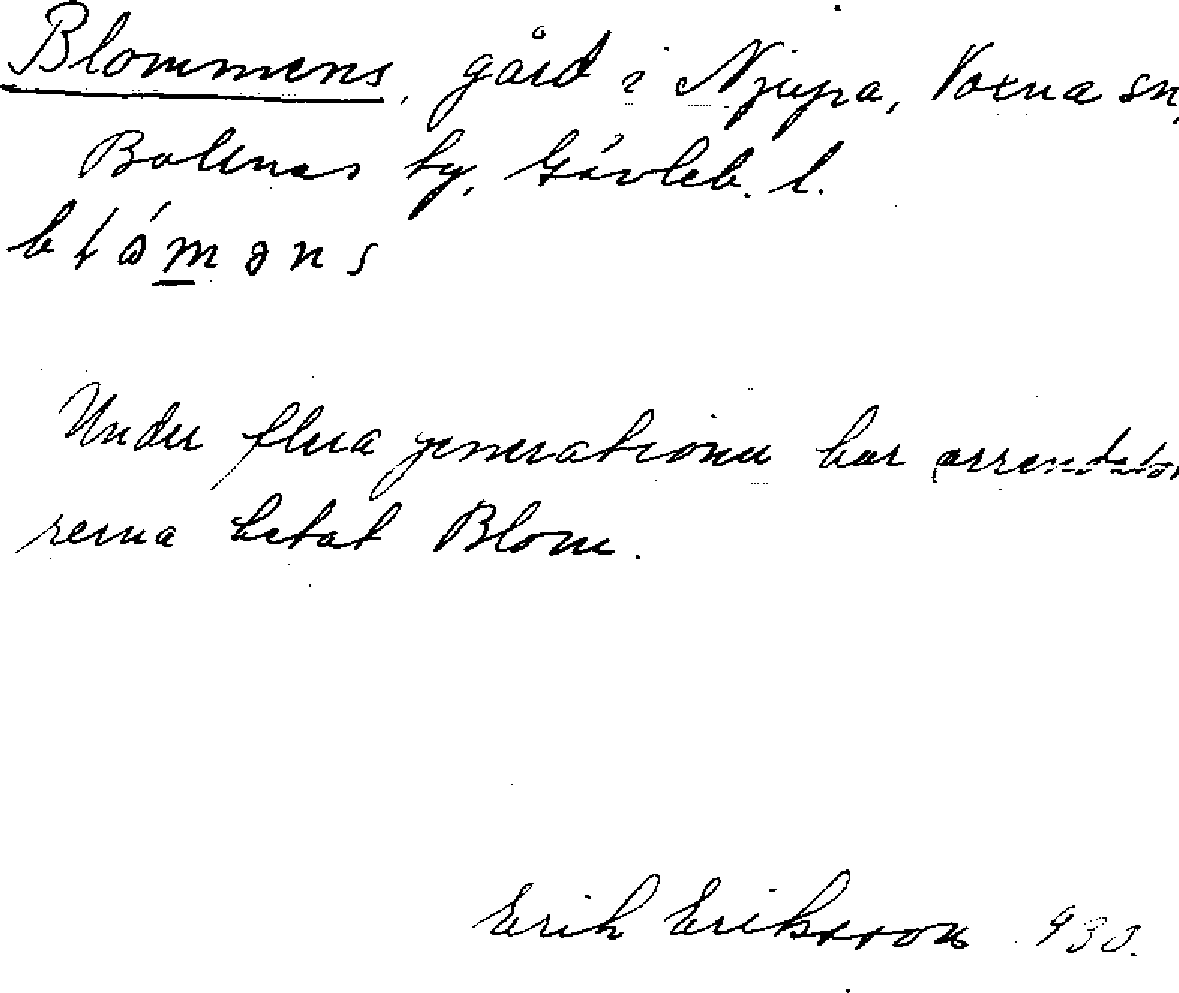 Blommens, gård i Njupa, Voxna sn,
Bollnäs ty, Gävleb. l.
blɔ́məns
Under flera generationer har arrendato
rerna hetat Blom.
Erik Eriksson 930.